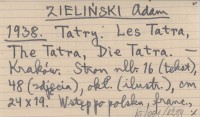 ZIELIŃSKI Adam
1938. Tatry. Les Tatra,
The Tatra, Die Tatra. —
Kraków. Stron nlb. 16 (tekst),
48 (zdjęcia), okł. (ilustr.), cm
24 x 19. Wstęp po polsku, franc.,